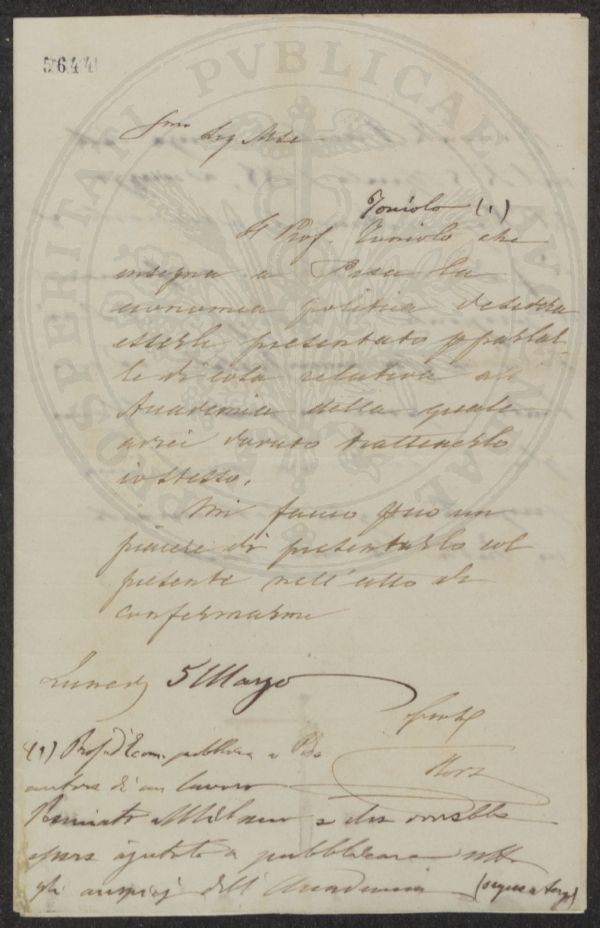 5644
PROSPERITATI PVBLICAE AVGENDAE
Sig Mse
Toniolo (1)
Il Prof. Toniolo che
insegna a Pisa la
economia politica desidera
esserle presentato p parlar
le di cosa relativa all'
Accademia della quale
avrei dovuto trattenerlo
io stesso.
Mi faccio un
piacere di presentarlo col
presente nell'atto di
confermarmi
Lunedì 5 Marzo
(1) Prof. d'Econ. pubblica a
autore di un lavoro
Premiato a Milano e che vorrebbe
ajutato a pubblicare sotto
gli auspicj dell'Accademia (segue a tergo)